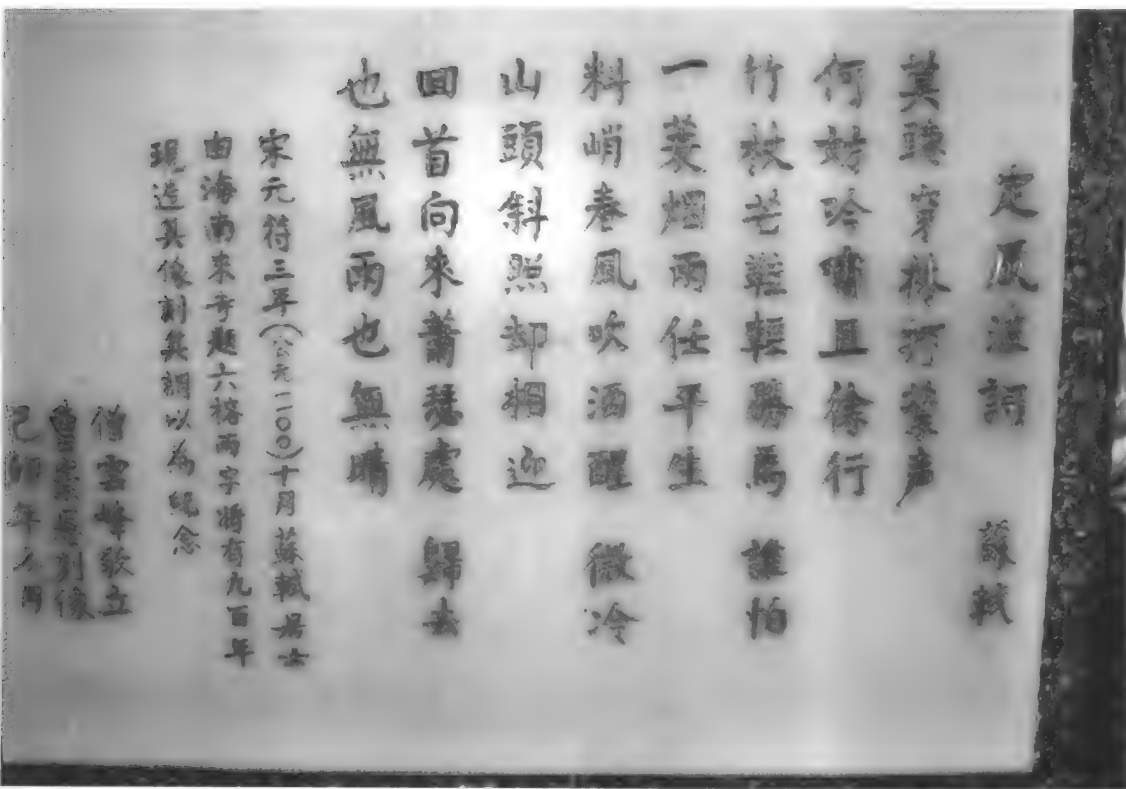 定風波詞 蘇軾
莫聽穿林打葉声
何妨吟嘯且徐行
竹杖芒鞋輕勝馬 誰怕
一蓑烟雨任平生
料峭春風吹酒醒 微冷
山頭斜照却相迎
回首向來蕭瑟處 歸去
也無風雨也無晴
宋元符三年(公元一一〇〇)十月蘇軾居士
由海南來寺題六榕兩字將有九百年
現造其像刻其詞以為紀念
僧雲峰敬立
刻像
年